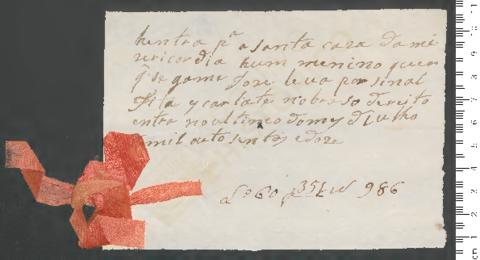 hentra pª a santa caza da mi
zericordia hum menino quer
q̃ se game Joze leva por sinal
fita y carlate no braso direito
entra no ultimo do mes d Julho
de mil outo sentos e doze
a f 60 f 35 Lº 986